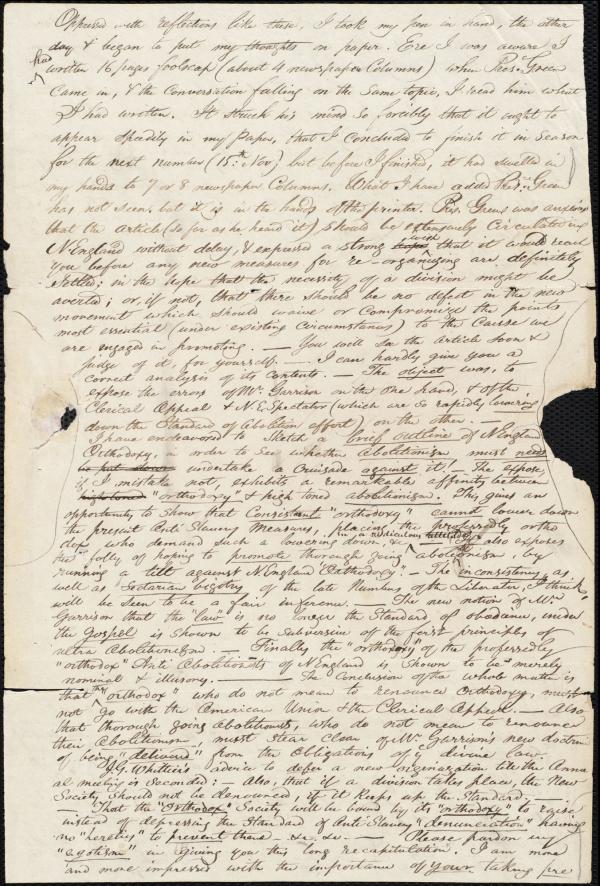 Oppressed with reflections like these, I took my pen in hand, the other
day & began to put my thoughts on paper. Ere I was aware I
had
written 16 pages foolscap (about 4 newspaper Columns) when Pres. Green
came in, & the conversation falling on the same topic, I read him what
I had written. It struck his mind so forcibly that it ought to
appear speedily in my paper, that I concluded to finish it in season
for the next number (15th Nov) but before I finished, it had swelled in
my hands to 7 or 8 newspaper Columns. What I have added Pres. Green
has not seen, but it is in the hands of the printer. Pres. Green was anxious
that the article (so far as he heard it) should be extensively circulated in
N England without delay, & expressed a strong wish that it would reach
you before any new measures for re-organizing are definitely
settled; in the hope that the necessity of a division might be
averted; or, if not, that there should be no defect in the new
movement which should waive or compromise the points
most essential (under existing circumstances) to the Cause we
are engaged in promoting. — You will see the article soon &
judge of it, for yourself. — I can hardly give you a
correct analysis of its contents. — The object was, to
expose the errors of Mr. Garrison on the one hand, & of the
Clerical Appeal & N E Spectator (which are so rapidly lowering
down the Standard of Abolition effort) on the other. —
I have endeavored to sketch a brief outline of N England
Orthodoxy, in order to see whether Abolitionism must needs
be put down undertake a Crusade against it! — The expose,
if I mistake not, exhibits a remarkable affinity between
high toned "orthodoxy" & high toned abolitionism. This gives an
opportunity to show that Consistent "orthodoxy" cannot lower down
the present Anti Slavery Measures, placing the professedly ortho
dox who demand such a lowering down, in a ridiculous attitude. It also exposes
the folly of hoping to promote thorough going abolitionism, by
running a tilt against N England "Orthodoxy". — The inconsistency, as
well as Sectarian bigotry of the late Numbers of the Liberator, I think
will be seen to be a fair inference. — The new notion of Mr.
Garrison that the "law" is no longer the Standard of obedience, under
the Gospel is shown to be subversive of the first principles of
ultra Abolitionism. — Finally the "orthodoxy" of the professedly
"orthodox" Anti Abolitionists of N England is shown to be merely
nominal & illusory. — The Conclusion of the whole matter is
that the "orthodox" who do not mean to renounce Orthodoxy, must
not go with the American Union & the Clerical Appeal. — Also
that thorough going Abolitionists, who do not mean to renounce
their Abolitionism, must stear clear of Mr. Garrison's new doctrine
of being "delivered" from the obligations of divine law.
J. G. Whittier's advice to defer a new organization till the Annu
al meeting is seconded; — Also, that if a division takes place, the New
Society should not be denounced if it keeps up the Standard.
That the "Orthodox" Society will be bound by its "orthodoxy" to raise
instead of depressing the Standard of Anti Slavery "denunciation" having
no "heresies" to prevent there — &c. &c. — Please pardon my
"egotism" in giving you this long recapitulation. I am more
and more impressed with the importance of your taking pre